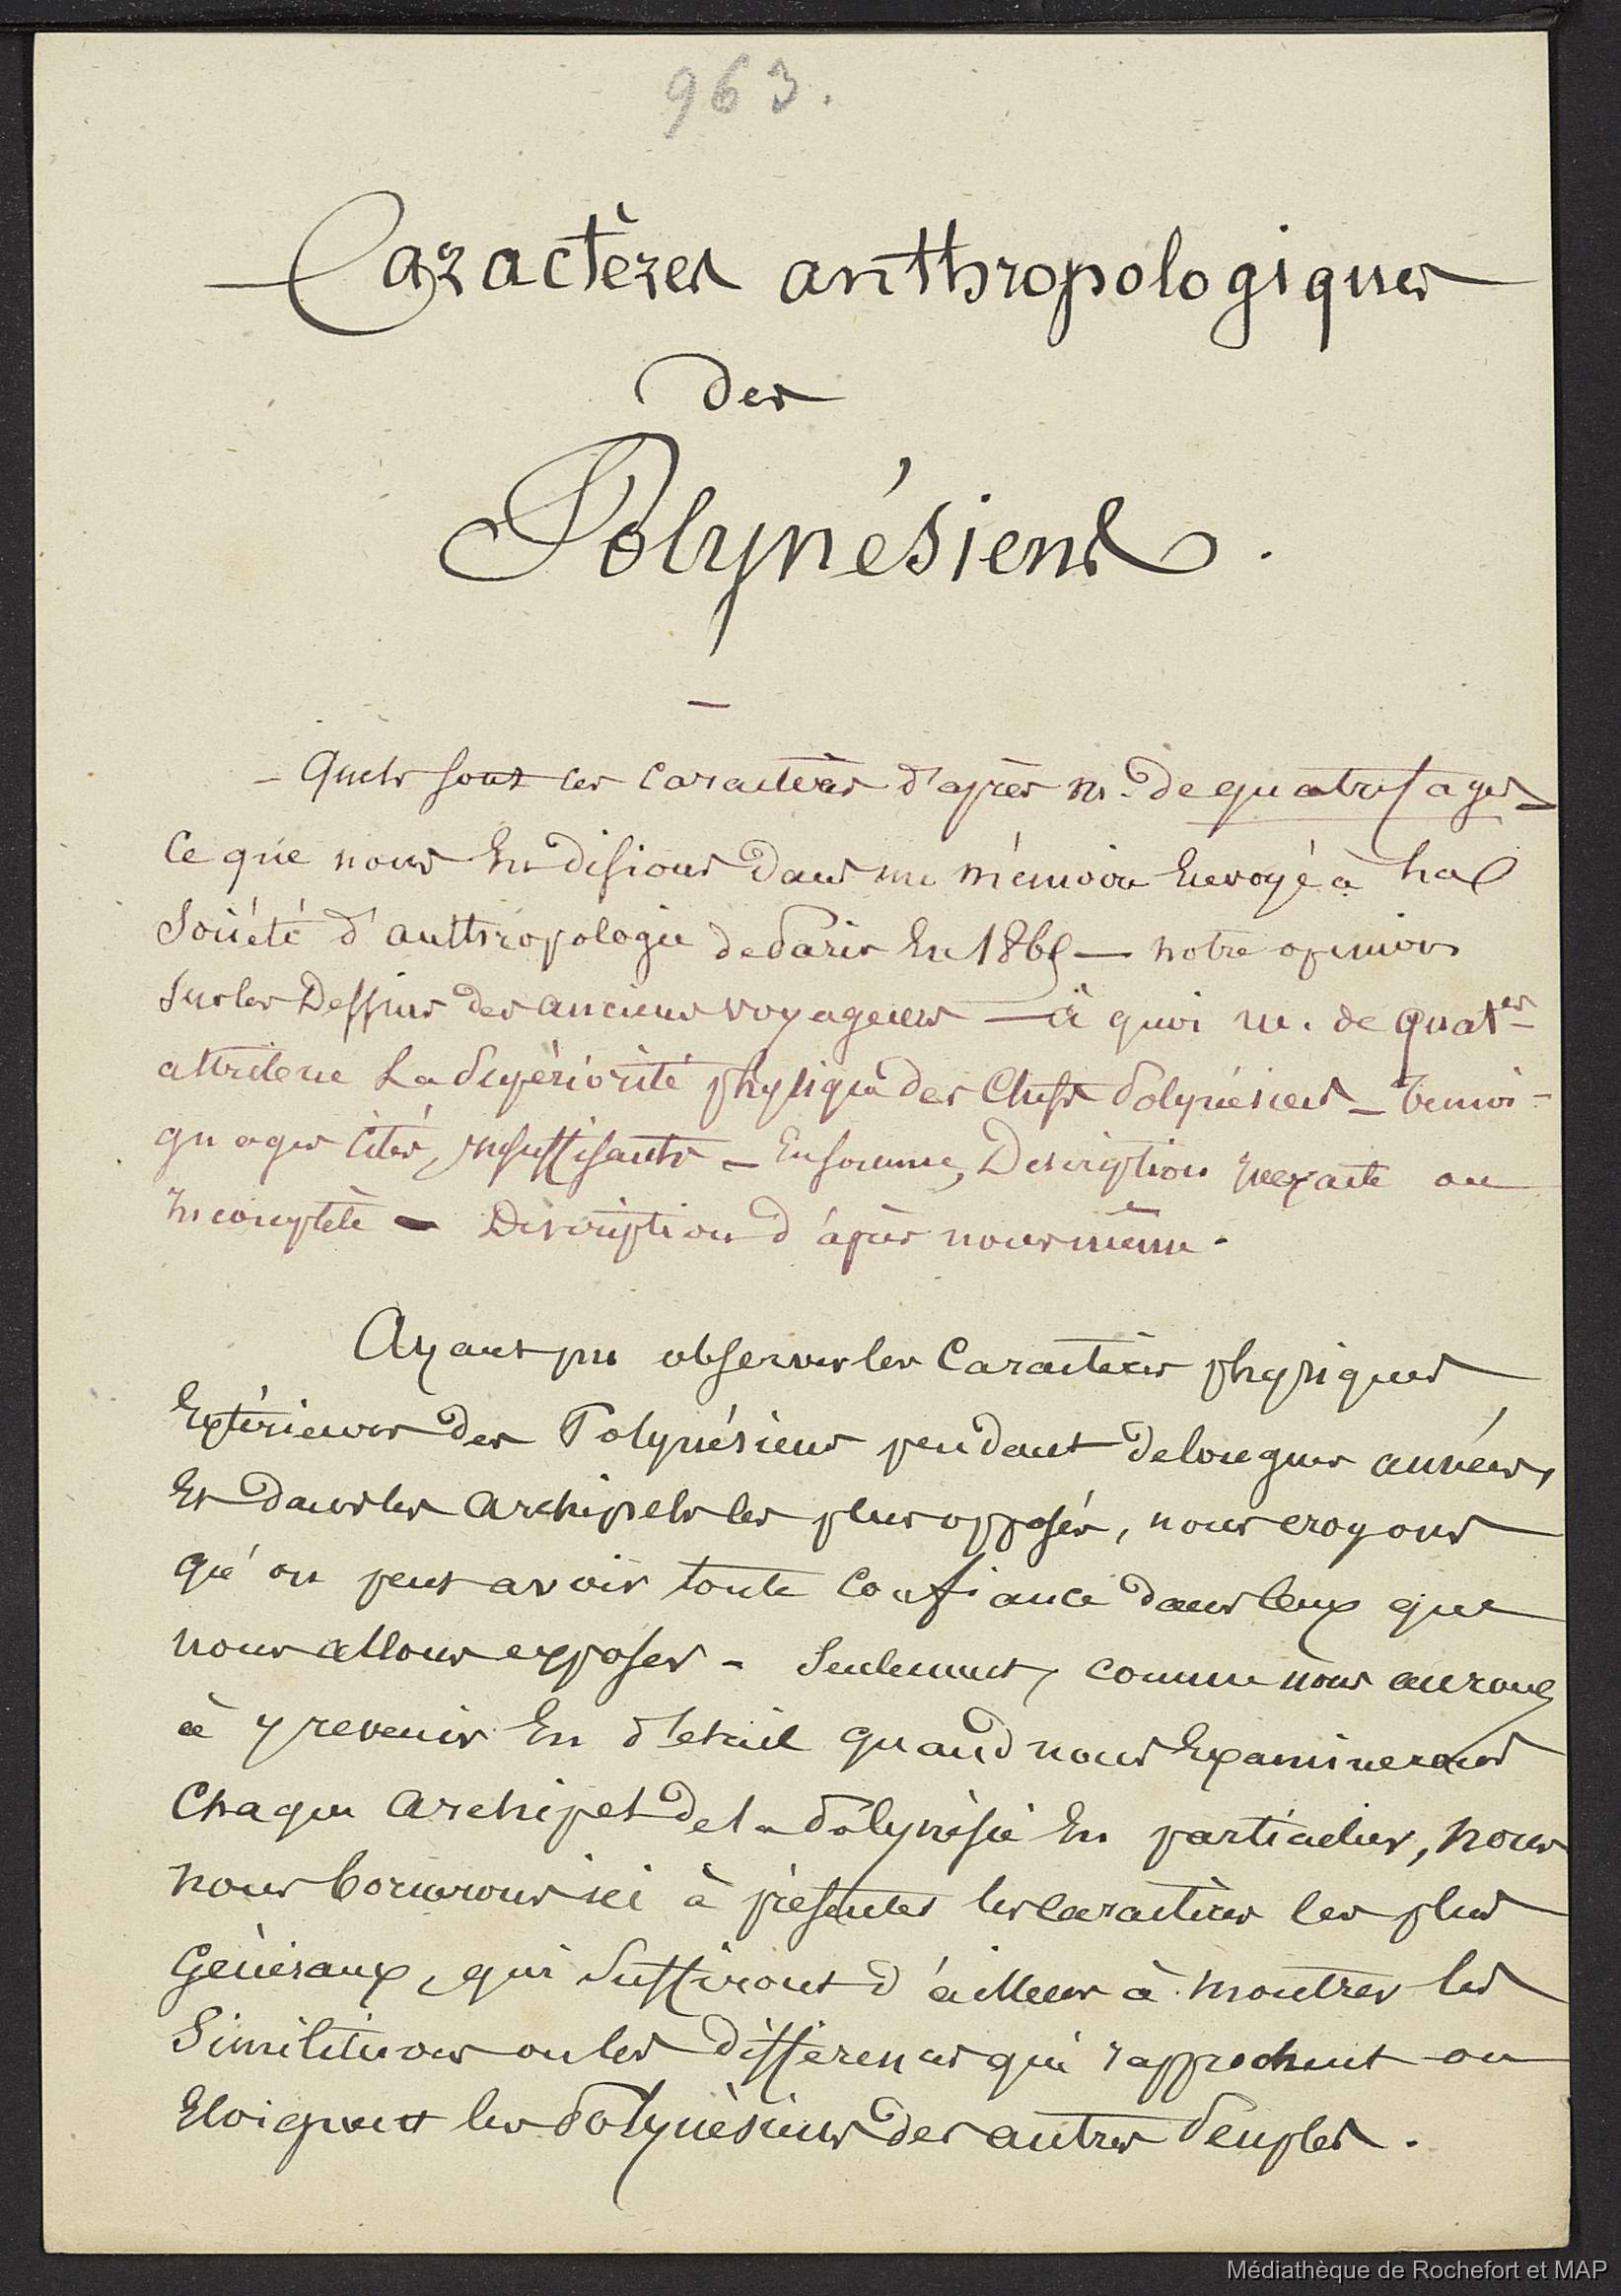 963.
Caractères anthropologiques
des
Polynésiens.
— Quels sont ces caractères d'après M. de quatrefages —
Ce que nous en disions dans un mémoire envoyé à la
Société d'anthropologie de Paris en 186 — notre opinion
sur les Dessins des anciens voyageurs — à quoi M. de quatres
attribue la supériorité physique des Chefs Polynésiens — Témoi-
gnages cités, insuffisants — En somme, Description inexacte ou
incomplète — Description d'après nous même.
Ayant pu observer les Caractères physiques
Extérieurs des Polynésiens pendant de longues années,
Et dans les archipels les plus opposés, nous croyons
qu'on peut avoir toute confiance dans ceux que
nous allons exposer - Seulement, comme nous aurons
à y revenir En détail quand nous Examinerons
Chaque archipel de la Polynésie En particulier, nous
nous bornerons ici à présenter les caractères les plus
Généraux, qui suffiront d'ailleurs à montrer les
Similitudes ou les différences qui rapprochent ou
Eloignent les Polynésiens des autres Peuples.
Médiathèque de Rochefort et MAP